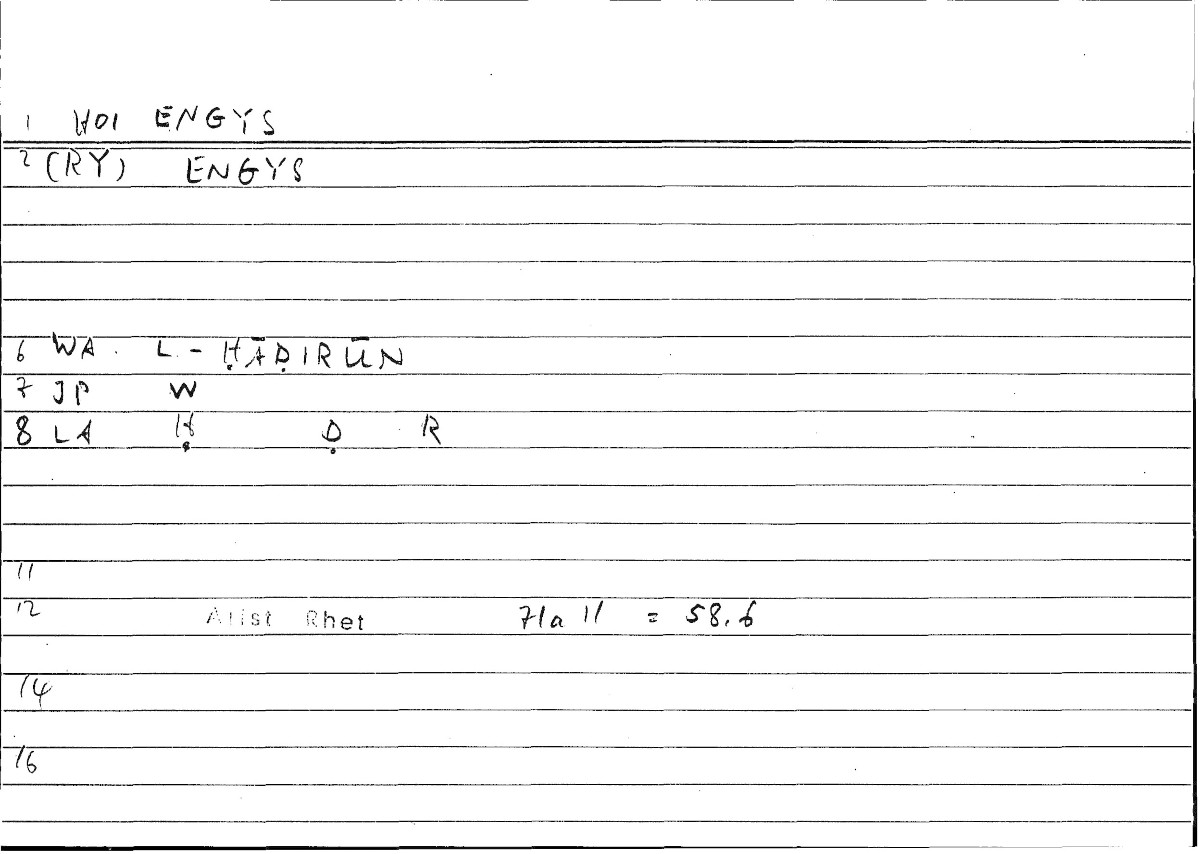 1 HOI ENGYS
2 (RY) ENGYS
6 WA. L-ḤĀḌIRŪN
7 JP W
8 LA Ḥ Ḍ R
11
12 Arist Rhet 71a 11 = 58.6
14
16